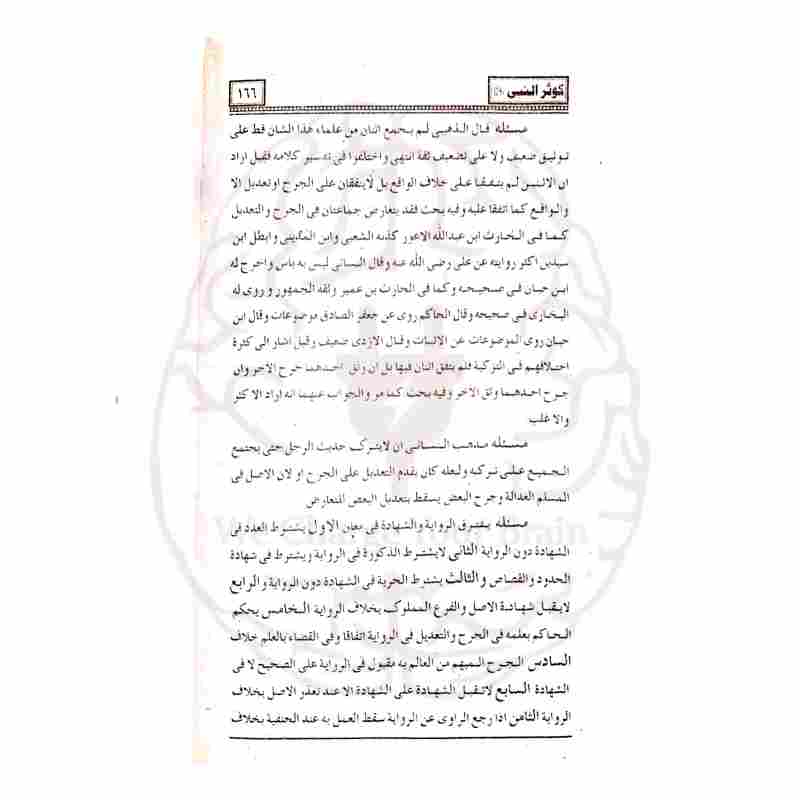 كوثر النبى
١٦٦
مسئله قال الذهبى لم يجمع اثنان من علماء هذا الشان قط على
توثيق ضعيف ولا على تضعيف ثقة انتهى واختلفوا فى تفسير كلامه فقيل اراد
ان الاثنين لم يتفقا على خلاف الواقع بل لايتفقان على الجرح او تعديل الا
والواقع كما اتفقا عليه وفيه بحث فقد يتعارض جماعتان فى الجرح والتعديل
كما فى الحارث ابن عبدالله الاعور كذبه الشعبى وابن المدينى وابطل ابن
سيرين اكثر روايته عن على رضى الله عنه وقال النسائى ليس به باس واخرج له
ابن حبان فى صحيحه وكما فى الحارث بن عمير وثقه الجمهور و روى له
البخارى فى صحيحه وقال الحاكم روى عن جعفر الصادق موضوعات وقال ابن
حبان روى الموضوعات عن الاثبات وقال الازدى ضعيف وقيل اشار الى كثرة
اختلافهم فى التزكية فلم يتفق اثنان فيها بل ان وثق احدهما جرح الآخر وان
جرح احدهما وثق الاخر وفيه بحث كما مر والجواب عنهما انه اراد الاكثر
والاغلب
مسئله مذهب النسائى ان لايترك حديث الرجل حتى يجتمع
الجميع على تركه ولعله كان يقدم التعديل على الجرح او لان الاصل فى
المسلم العدالة وجرح البعض يسقط بتعديل البعض للتعارض
مسئله يفترق الرواية والشهادة فى معان الاول يشترط العدد فى
الشهادة دون الرواية الثانى لايشترط الذكورة فى الرواية ويشترط فى شهادة
الحدود والقصاص والثالث يشترط الحرية فى الشهادة دون الرواية والرابع
لايقبل شهادة الاصل والفرع المملوك بخلاف الرواية الخامس يحكم
الحاكم بعلمه فى الجرح والتعديل فى الرواية اتفاقا وفى القضاء بالعلم خلاف
السادس الجرح المبهم من العالم به مقبول فى الرواية على الصحيح لا فى
الشهادة السابع لاتقبل الشهادة على الشهادة الا عند تعذر الاصل بخلاف
الرواية الثامن اذا رجع الراوى عن الرواية سقط العمل به عند الحنفية بخلاف